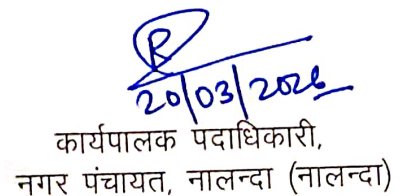 20/03/2026
कार्यपालक पदाधिकारी,
नगर पंचायत, नालन्दा (नालन्दा)